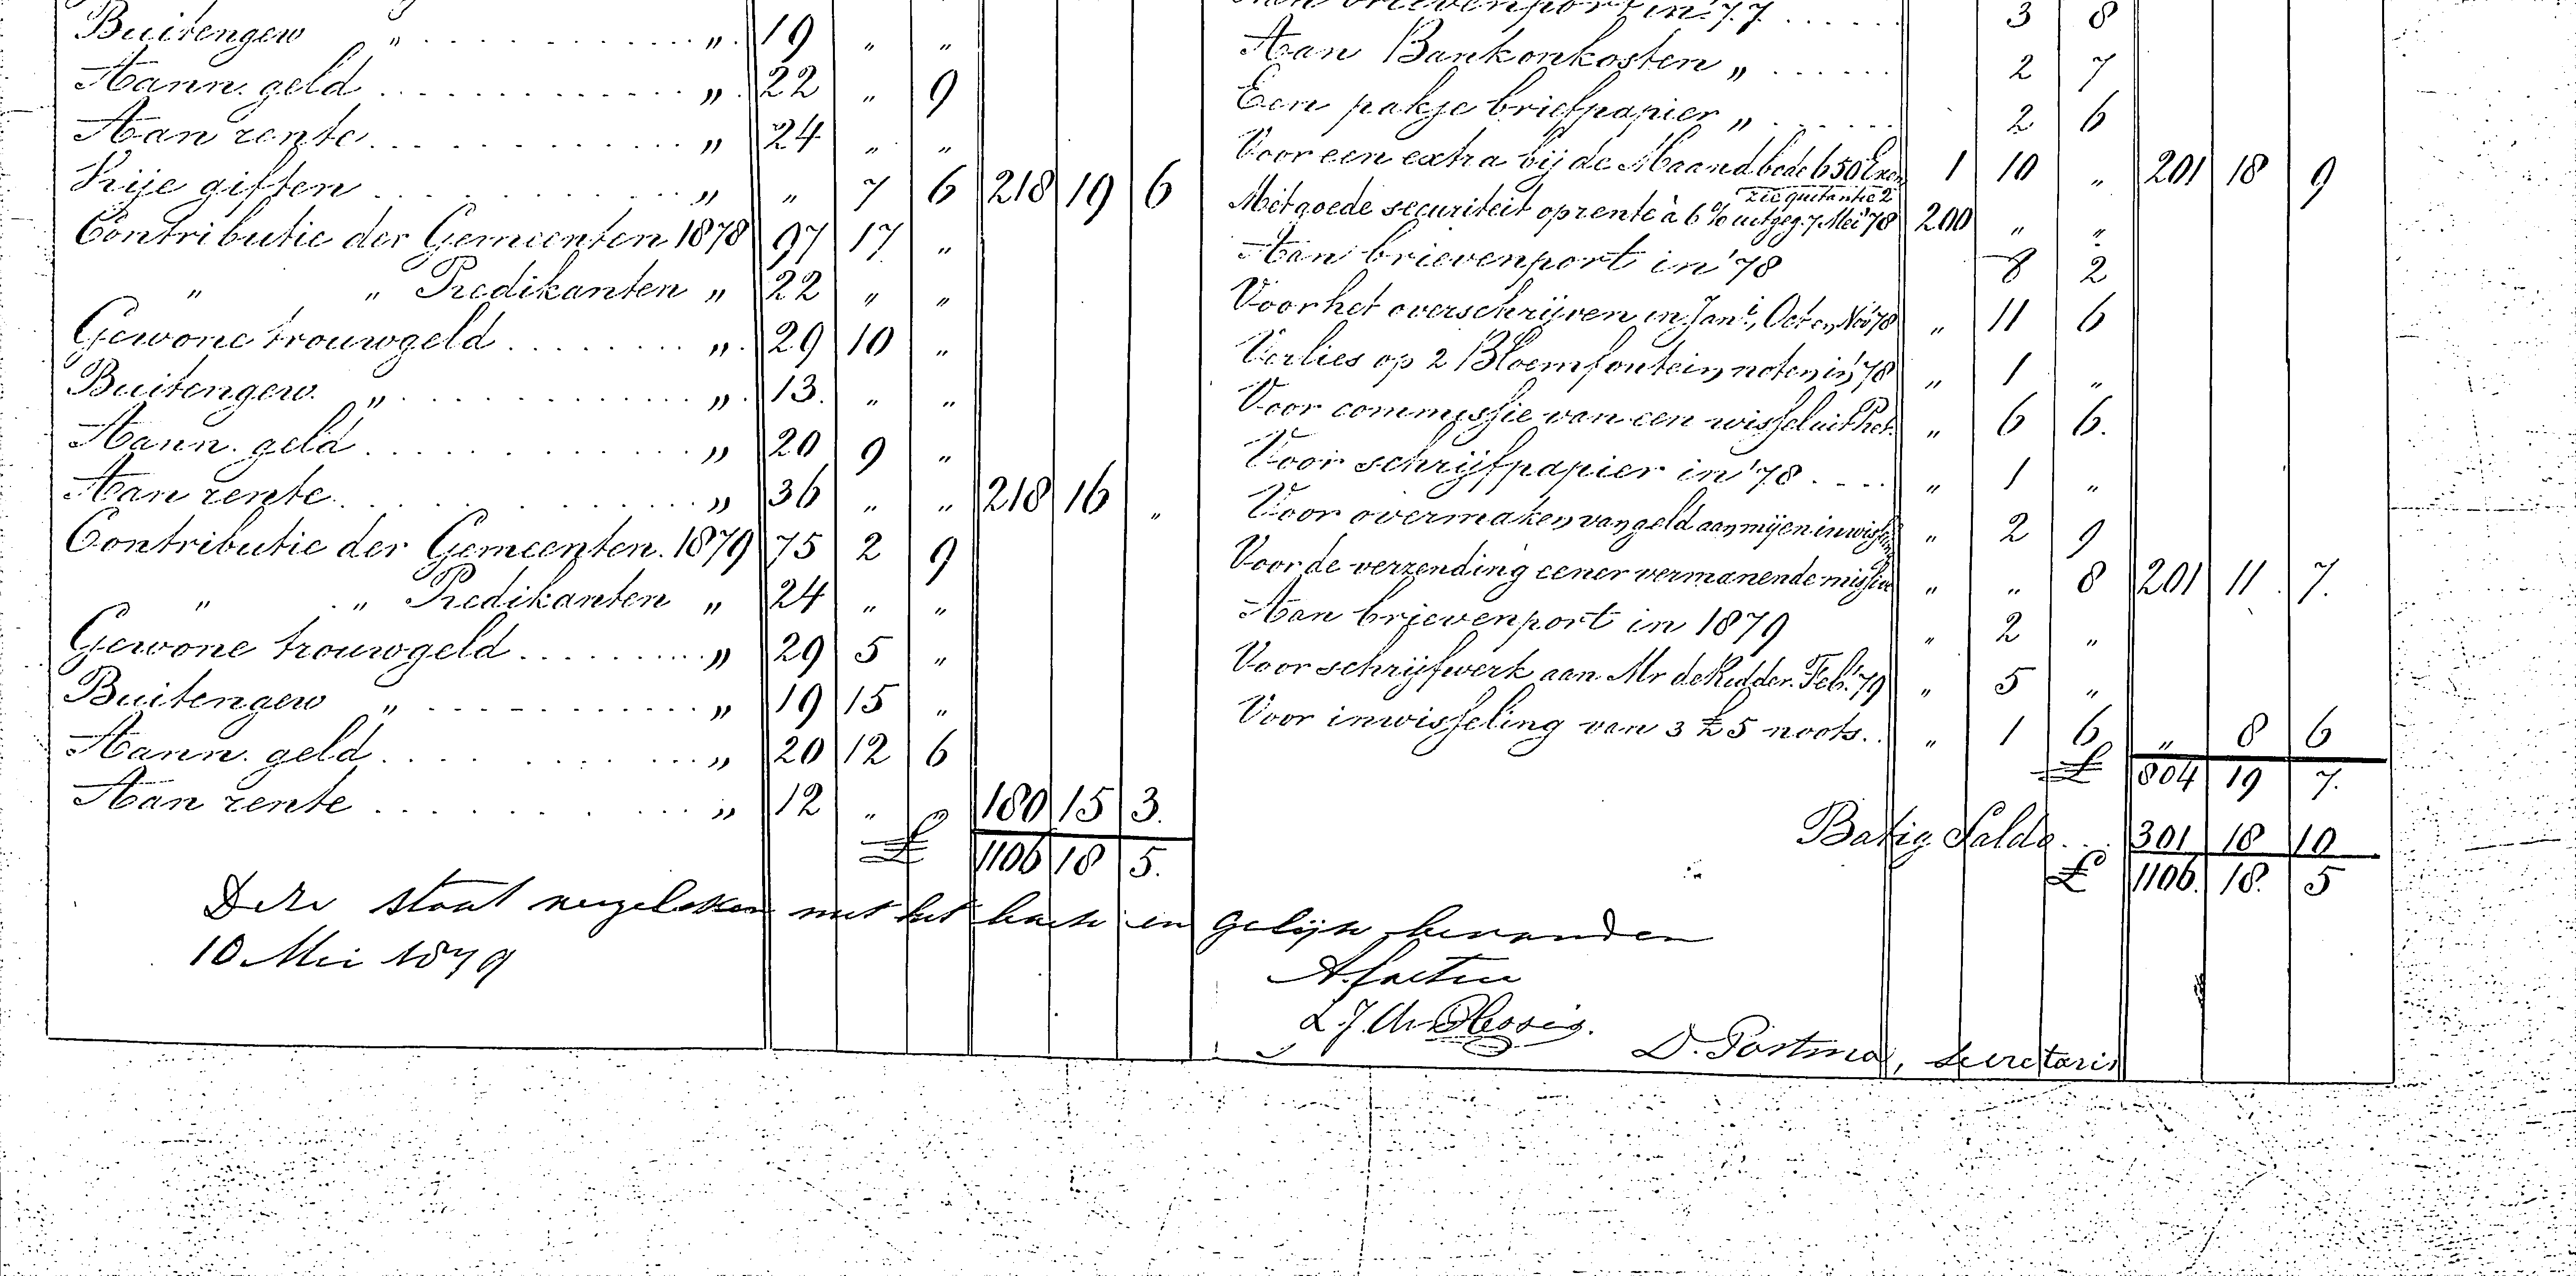 Buitengew " . . . . " 19 " "
Aann. geld . . . . " 22 " 9
Aan rente . . . . " 24 " "
Vrije giften . . . . " " 7 6 218 19 6
Contributie der Gemeenten 1878 97 17 "
" " Predikanten " 22 " "
Gewone trouwgeld . . . . " 29 10 "
Buitengew. " . . . . " 13. " "
Aann. geld . . . . " 20 9 "
Aan rente . . . . " 36 " " 218 16 "
Contributie der Gemeenten. 1879 75 2 9
" " Predikanten " 24 " "
Gewone trouwgeld . . . . " 29 5 "
Buitengew " . . . . " 19 15 "
Aann. geld . . . . " 20 12 6
Aan rente . . . . " 12 " " 180 15 3.
£ 1106 18 5.
Aan brievenport in '77 . . . . 3 8
Aan Bankonkosten " . . . . 2 7
Een pakje briefpapier " . . . . 2 6
Voor een extra bij de Maandbode 650 Exen 1 10 " 201 18 9
zie quitantie 2
Met goede securiteit op rente à 6 % uitgeg. 7 Mei '78 200 " "
Aan brievenport in '78 8 2
Voor het overschrijven in Jan., Oct en Nov '78 " 11 6
Verlies op 2 Bloemfontein noten in '78 " 1 "
Voor commissie van een wissel uit Pot. " 6 6.
Voor schrijfpapier in '78 . . . . " 1 "
Voor overmaken van geld aan mij en inwissel " 2 9
Voor de verzending eener vermanende missive " " 8 201 11 7.
Aan brievenport in 1879 " 2 "
Voor schrijfwerk aan Mr de Ridder. Feb. '79 " 5 "
Voor inwisseling van 3 £ 5 noots. . " 1 6 " 8 6
£ 804 19 7.
Batig Saldo . . 301 18 10
£ 1106. 18. 5
Deze staat vergeleken met het boek en gelijk bevonden
10 Mei 1879
L. J. du Plessis.
D. Postma, Secretaris